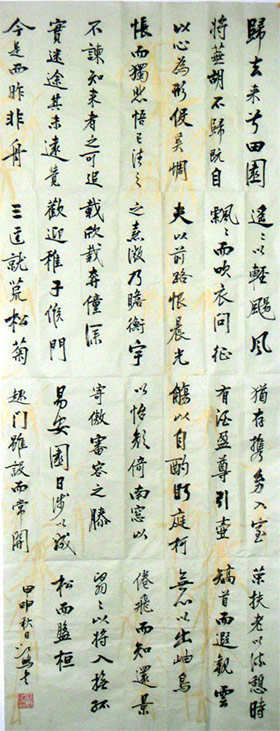 歸去来兮田園
將蕪胡不歸既自
以心為形役奚惆
悵而獨悲悟已往之
不諫知来者之可追
實迷途其未遠覺
今是而昨非舟
遥々以輕颺風
飄々而吹衣問征
夫以前路恨晨光
之熹微乃瞻衡宇
載欣載奔僮僕
歡迎稚子候門
三徑就荒松菊
猶存攜幼入室
有酒盈尊引壺
觴以自酌眄庭柯
以怡顏倚南窓以
寄傲審容之膝
易安園日涉以成
趣門雖設而常關
策扶老以流憩時
矯首而遐觀雲
無心以出岫鳥
倦飛而知還景
翳々以將入撫孤
松而盤桓
甲申秋日